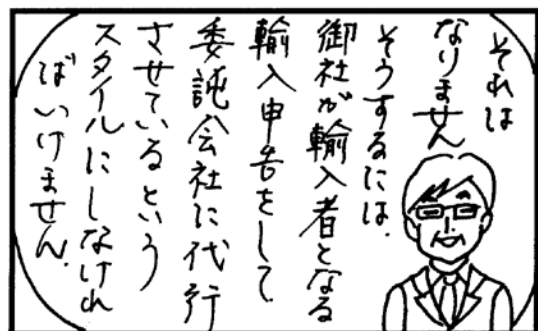 それは
なりません
そうするには、
御社が輸入者となる
輸入申告をして
委託会社に代行
させているという
スタイルにしなけれ
ばいけません。